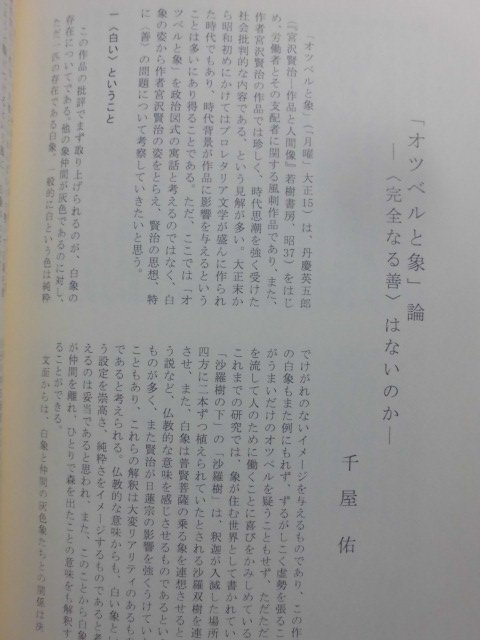 「オツベルと象」論
―〈完全なる善〉はないのか―
千屋佑
「オツベルと象」(「月曜」大正15)は、丹慶英五郎
(『宮沢賢治―作品と人間像』若樹書房、昭37)をはじ
め、労働者とその支配者に関する風刺作品であり、また、
作者宮沢賢治の作品では珍しく、時代思潮を強く受けた
社会批判的な内容である、という見解が多い。大正末か
ら昭和初めにかけてはプロレタリア文学が盛んに作られ
た時代でもあり、時代背景が作品に影響を与えるという
ことは多いにあり得ることである。ただ、ここでは「オ
ツベルと象」を政治図式の寓話と考えるのではなく、白
象の姿から作者宮沢賢治の姿をとらえ、賢治の思想、特
に〈善〉の問題について考察していきたいと思う。
一〈白い〉ということ
この作品の批評でまず取り上げられるのが、白象の
存在についてである。他の象仲間が灰色であるのに対し、
ただ一匹の存在である白象。一般的に白という色は純粋
でけがれのないイメージを与えるものであり、この作
の白象もまた例にもれず、ずるがしこく虚勢を張るこ
がうまいだけのオツベルを疑うこともせず、ただただ
を流して人のために働くことに喜びをかみしめている
これまでの研究では、象が住む世界として書かれてい
「沙羅樹の下」の「沙羅樹」は、釈迦が入滅した場所
四方に二本ずつ植えられていたとされる沙羅双樹を連
させ、また、白象は普賢菩薩の乗る象を連想させると
う説など、仏教的な意味を感じさせるものであるとい
ものが多く、また賢治が日蓮宗の影響を強くうけてい
こともあり、これらの解釈は大変リアリティのあるも
であると考えられる。仏教的な意味からも、白い象と
う設定を崇高さ、純粋さをイメージするものであると考
えるのは妥当であると思われ、また、このことから白象
が仲間を離れ、ひとりで森を出たことの意味をも解釈す
ることができる。
文面からは、白象と仲間の灰色象たちとの関係は